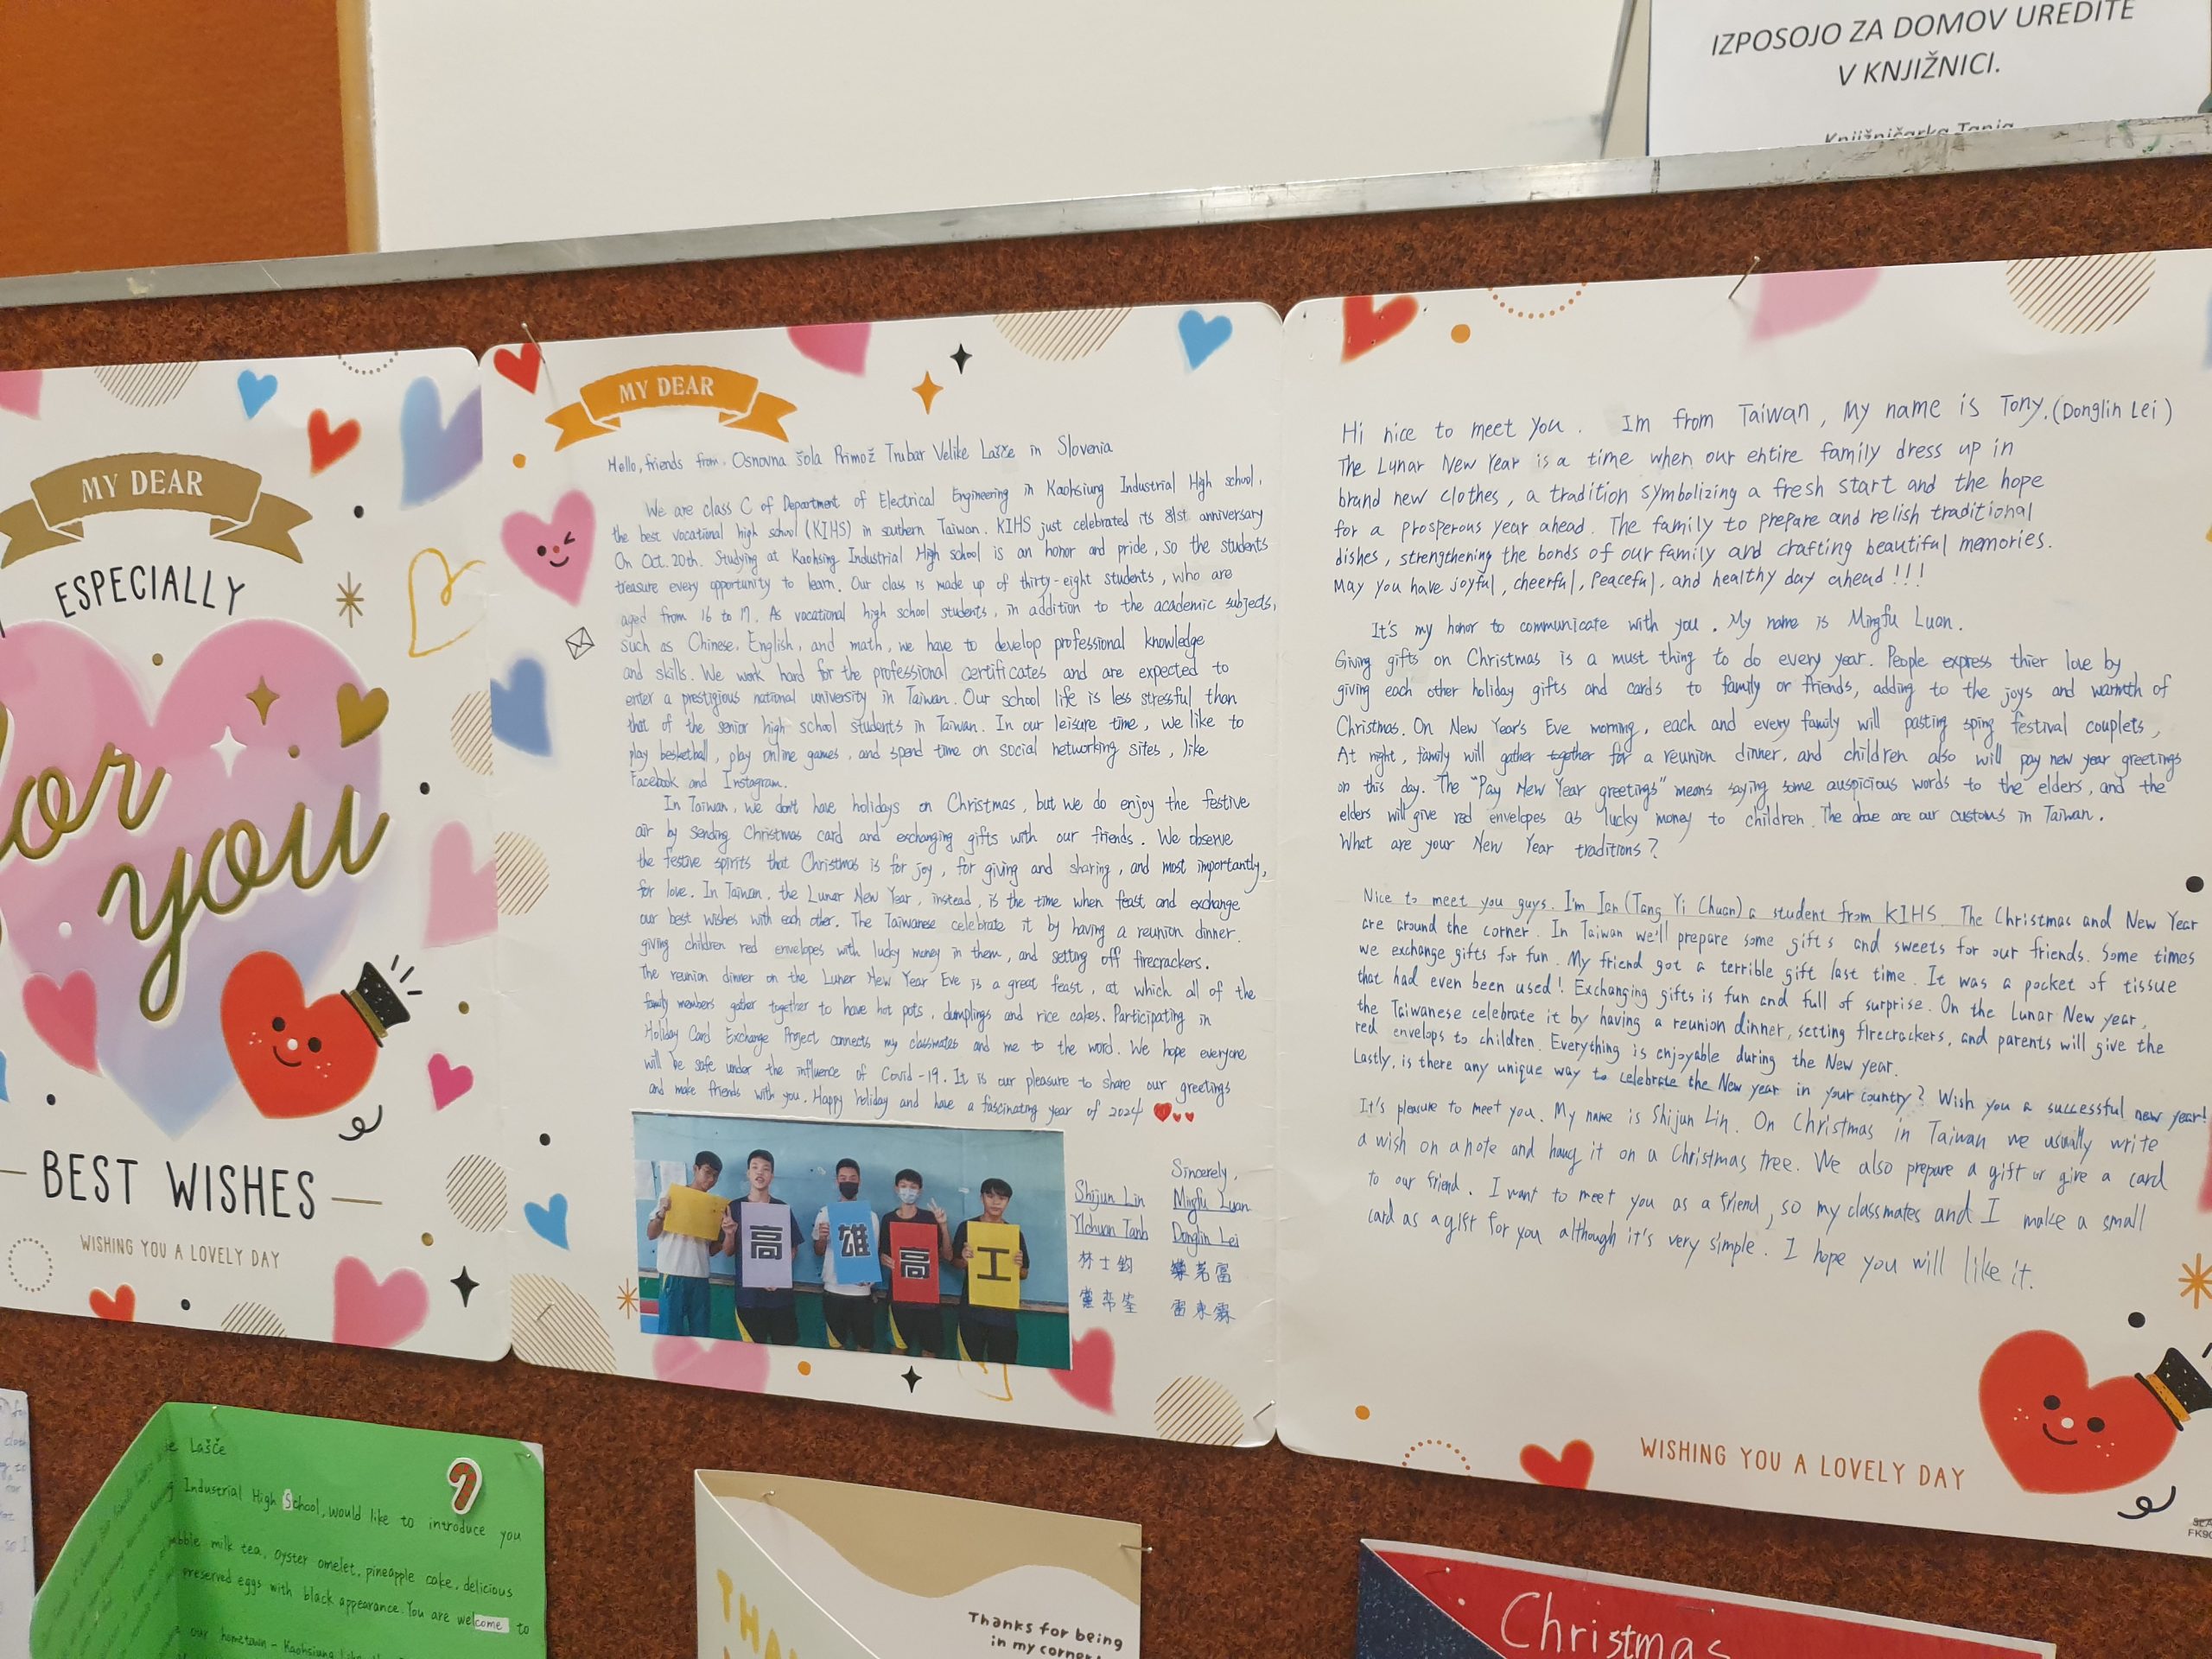 IZPOSOJO ZA DOMOV UREDITE
V KNJIŽNICI.
Knjižničarka Tanja
MY DEAR
ESPECIALLY
for
you
BEST WISHES
WISHING YOU A LOVELY DAY
MY DEAR
Hello, friends from Osnovna šola Primož Trubar Velike Lašče in Slovenia
We are class C of Department of Electrical Engineering in Kaohsiung Industrial High school,
the best vocational high school (KIHS) in southern Taiwan. KIHS just celebrated its 81st anniversary
On Oct. 20th. Studying at Kaohsing Industrial High school is an honor and pride, so the students
treasure every opportunity to learn. Our class is made up of thirty-eight students, who are
aged from 16 to 17. As vocational high school students, in addition to the academic subjects,
such as Chinese, English, and math, we have to develop professional knowledge
and skills. We work hard for the professional certificates and are expected to
enter a prestigious national university in Taiwan. Our school life is less stressful than
that of the senior high school students in Taiwan. In our leisure time, we like to
play besketball, play online games, and spend time on social networking sites, like
Facebook and Instagram.
In Taiwan, we don't have holidays on Christmas, but we do enjoy the festive
air by sending Christmas card and exchanging gifts with our friends. We observe
the festive spirits that Christmas is for joy, for giving and sharing, and most importantly,
for love. In Taiwan, the Lunar New Year, instead, is the time when feast and exchange
our best wishes with each other. The Taiwanese celebrate it by having a reunion dinner.
giving children red envelopes with lucky money in them, and setting off firecrackers.
The reunion dinner on the Luner New Year Eve is a great feast, at which all of the
family members gather together to have hot pots, dumplings and rice cakes. Participating in
Holiday Card Exchange Project connects my classmates and me to the word. We hope everyone
will be safe under the influence of Covid-19. It is our pleasure to share our greetings
and make friends with you. Happy holiday and have a fascinating year of 2024
高 雄 高 工
Sincerely,
Shijun Lin Mingfu Luan
Yichuan Tanh Donglin Lei
林士鈞
雷東霖
Hi nice to meet you. Im from Taiwan, My name is Tony. (Donglin Lei)
The Lunar New Year is a time when our entire family dress up in
brand new clothes, a tradition symbolizing a fresh start and the hope
for a prosperous year ahead. The family to prepare and relish traditional
dishes, strengthening the bonds of our family and crafting beautiful memories.
May you have joyful, cheerful, peaceful, and healthy day ahead!!!
It's my honor to communicate with you. My name is Mingfu Luan.
Giving gifts on Christmas is a must thing to do every year. People express thier love by
giving each other holiday gifts and cards to family or friends, adding to the joys and warmth of
Christmas. On New Year's Eve morning, each and every family will pasting sping festival couplets,
At night, family will gather together for a reunion dinner, and children also will pay new year greetings
on this day. The "Pay New Year greetings" means saying some auspicious words to the elders, and the
elders will give red envelopes as lucky money to children. The above are our customs in Taiwan.
What are your New Year traditions?
Nice to meet you guys. I'm Ian (Tang Yi Chuan) a student from KIHS. The Christmas and New Year
are around the corner. In Taiwan we'll prepare some gifts and sweets for our friends. Some times
we exchange gifts for fun. My friend got a terrible gift last time. It was a pocket of tissue
that had even been used! Exchanging gifts is fun and full of surprise. On the Lunar New year,
the Taiwanese celebrate it by having a reunion dinner, setting firecrackers, and parents will give the
red envelops to children. Everything is enjoyable during the New year.
Lastly, is there any unique way to celebrate the New year in your country? Wish you a successful new year!
It's pleasure to meet you. My name is Shijun Lin. On Christmas in Taiwan we usually write
a wish on a note and hang it on a Christmas tree. We also prepare a gift or give a card
to our friend. I want to meet you as a friend, so my classmates and I make a small
card as a gift for you although it's very simple. I hope you will like it.
WISHING YOU A LOVELY DAY
Lašče
Industrial High School, would like to introduce you
milk tea, oyster omelet, pineapple cake, delicious
preserved eggs with black appearance. You are welcome to
our hometown - Kaohsiung
Thanks for being
in my corner
Christmas